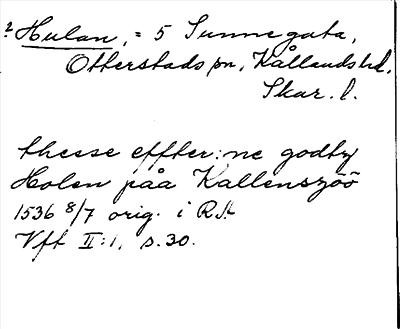 ? Hulan, = 5 Sunnegata,
Otterstads sn, Kållands hd.
Skar. l.
thesse effter:ne godtz
Holen påå Kallenszöö
1536 8/7 orig. i RA
Vft II:1, s. 30.